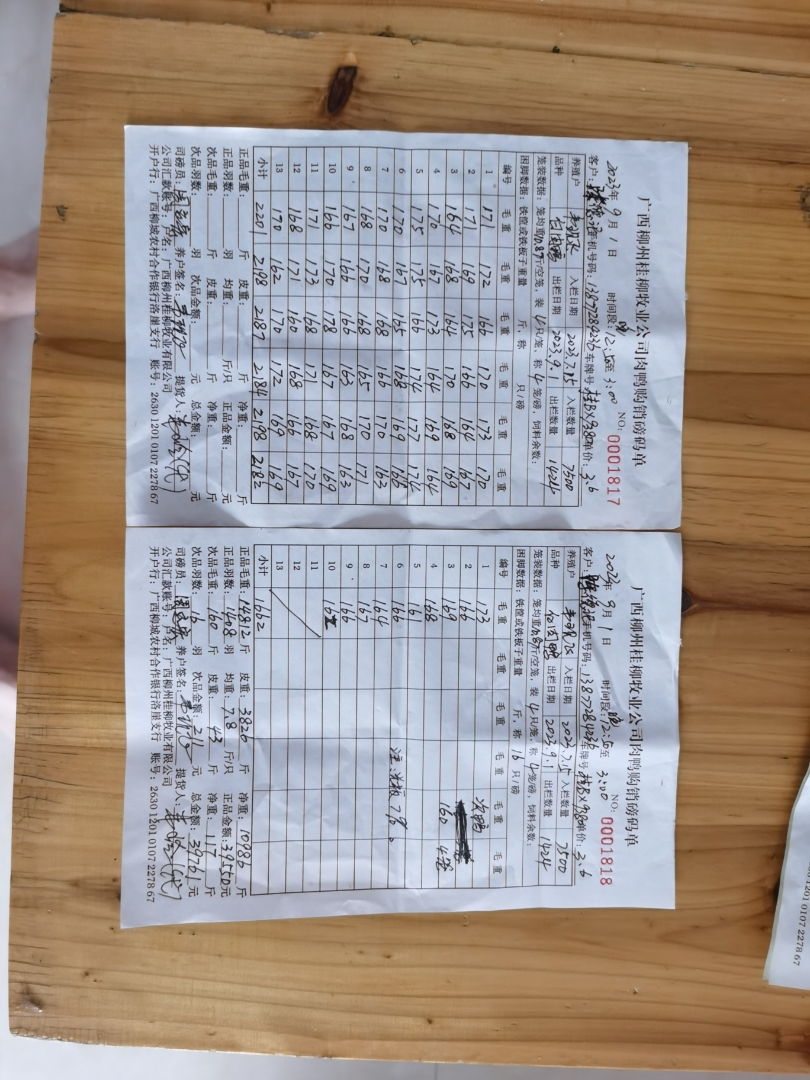 广西柳州桂柳牧业公司肉鸭购销磅码单
NO: 0001817
2023年 9月 1日 时间段: 12:50至 3:00
客户: 手机号码: 13877284236 车牌号 单价: 3.6
养殖户 入栏日期 2023.7.15 入栏数量 7500
品种 出栏日期 2023.9.1 出栏数量 1424
笼装数据: 笼均重10.87斤/空笼、装4只/笼、称4笼/磅、饲料余数:
困脚数据: 铁筐或铁板子重量 斤, 称 只/磅
编号 毛重 毛重 毛重 毛重 毛重 毛重
1 171 172 166 170 173 170
2 171 169 175 166 164 167
3 164 168 164 170 168 169
4 170 167 173 164 169 164
5 175 175 166 174 177 174
6 170 167 165 168 169 165
7 170 168 168 166 170 163
8 168 170 168 165 170 171
9 167 166 166 163 168 163
10 166 170 178 167 167 169
11 171 173 168 171 168 170
12 168 171 160 168 166 167
13 170 162 170 172 169 169
小计 2201 2198 2187 2184 2198 2182
正品毛重: 斤 皮重: 斤 净重: 斤
正品羽数: 羽 均重: 斤/只 正品金额: 元
次品毛重: 斤 皮重: 斤 净重: 斤
次品羽数: 羽 次品金额: 元 总金额: 元
司磅员: 养户签名: 提货人:
公司汇款账号: 户名: 广西柳州桂柳牧业有限公司
开户行: 广西柳城农村合作银行洛崖支行 账号: 2630 1201 0107 2278 67
广西柳州桂柳牧业公司肉鸭购销磅码单
NO: 0001818
2023年 9月 1日 时间段: 12:50至 3:00
客户: 手机号码: 13877284236 车牌号 单价: 3.6
养殖户 入栏日期 2023.7.15 入栏数量 7500
品种 出栏日期 2023.9.1 出栏数量 1424
笼装数据: 笼均重10.87斤/空笼、装4只/笼、称4笼/磅、饲料余数:
困脚数据: 铁筐或铁板子重量 斤, 称 16 只/磅
编号 毛重 毛重 毛重 毛重 毛重 毛重
1 173
2 166 次鸭
3 169 160 4笼
4 168
5 161
6 166
7 164
8 167
9 166
10 162
11
12
13
小计 1662
正品毛重: 14812 斤 皮重: 3826 斤 净重: 10986 斤
正品羽数: 1408 羽 均重: 7.8 斤/只 正品金额: 39550 元
次品毛重: 160 斤 皮重: 43 斤 净重: 117 斤
次品羽数: 16 羽 次品金额: 211 元 总金额: 39761 元
司磅员: 养户签名: 提货人:
公司汇款账号: 户名: 广西柳州桂柳牧业有限公司
开户行: 广西柳城农村合作银行洛崖支行 账号: 2630 1201 0107 2278 67
1201 0107 2278 67